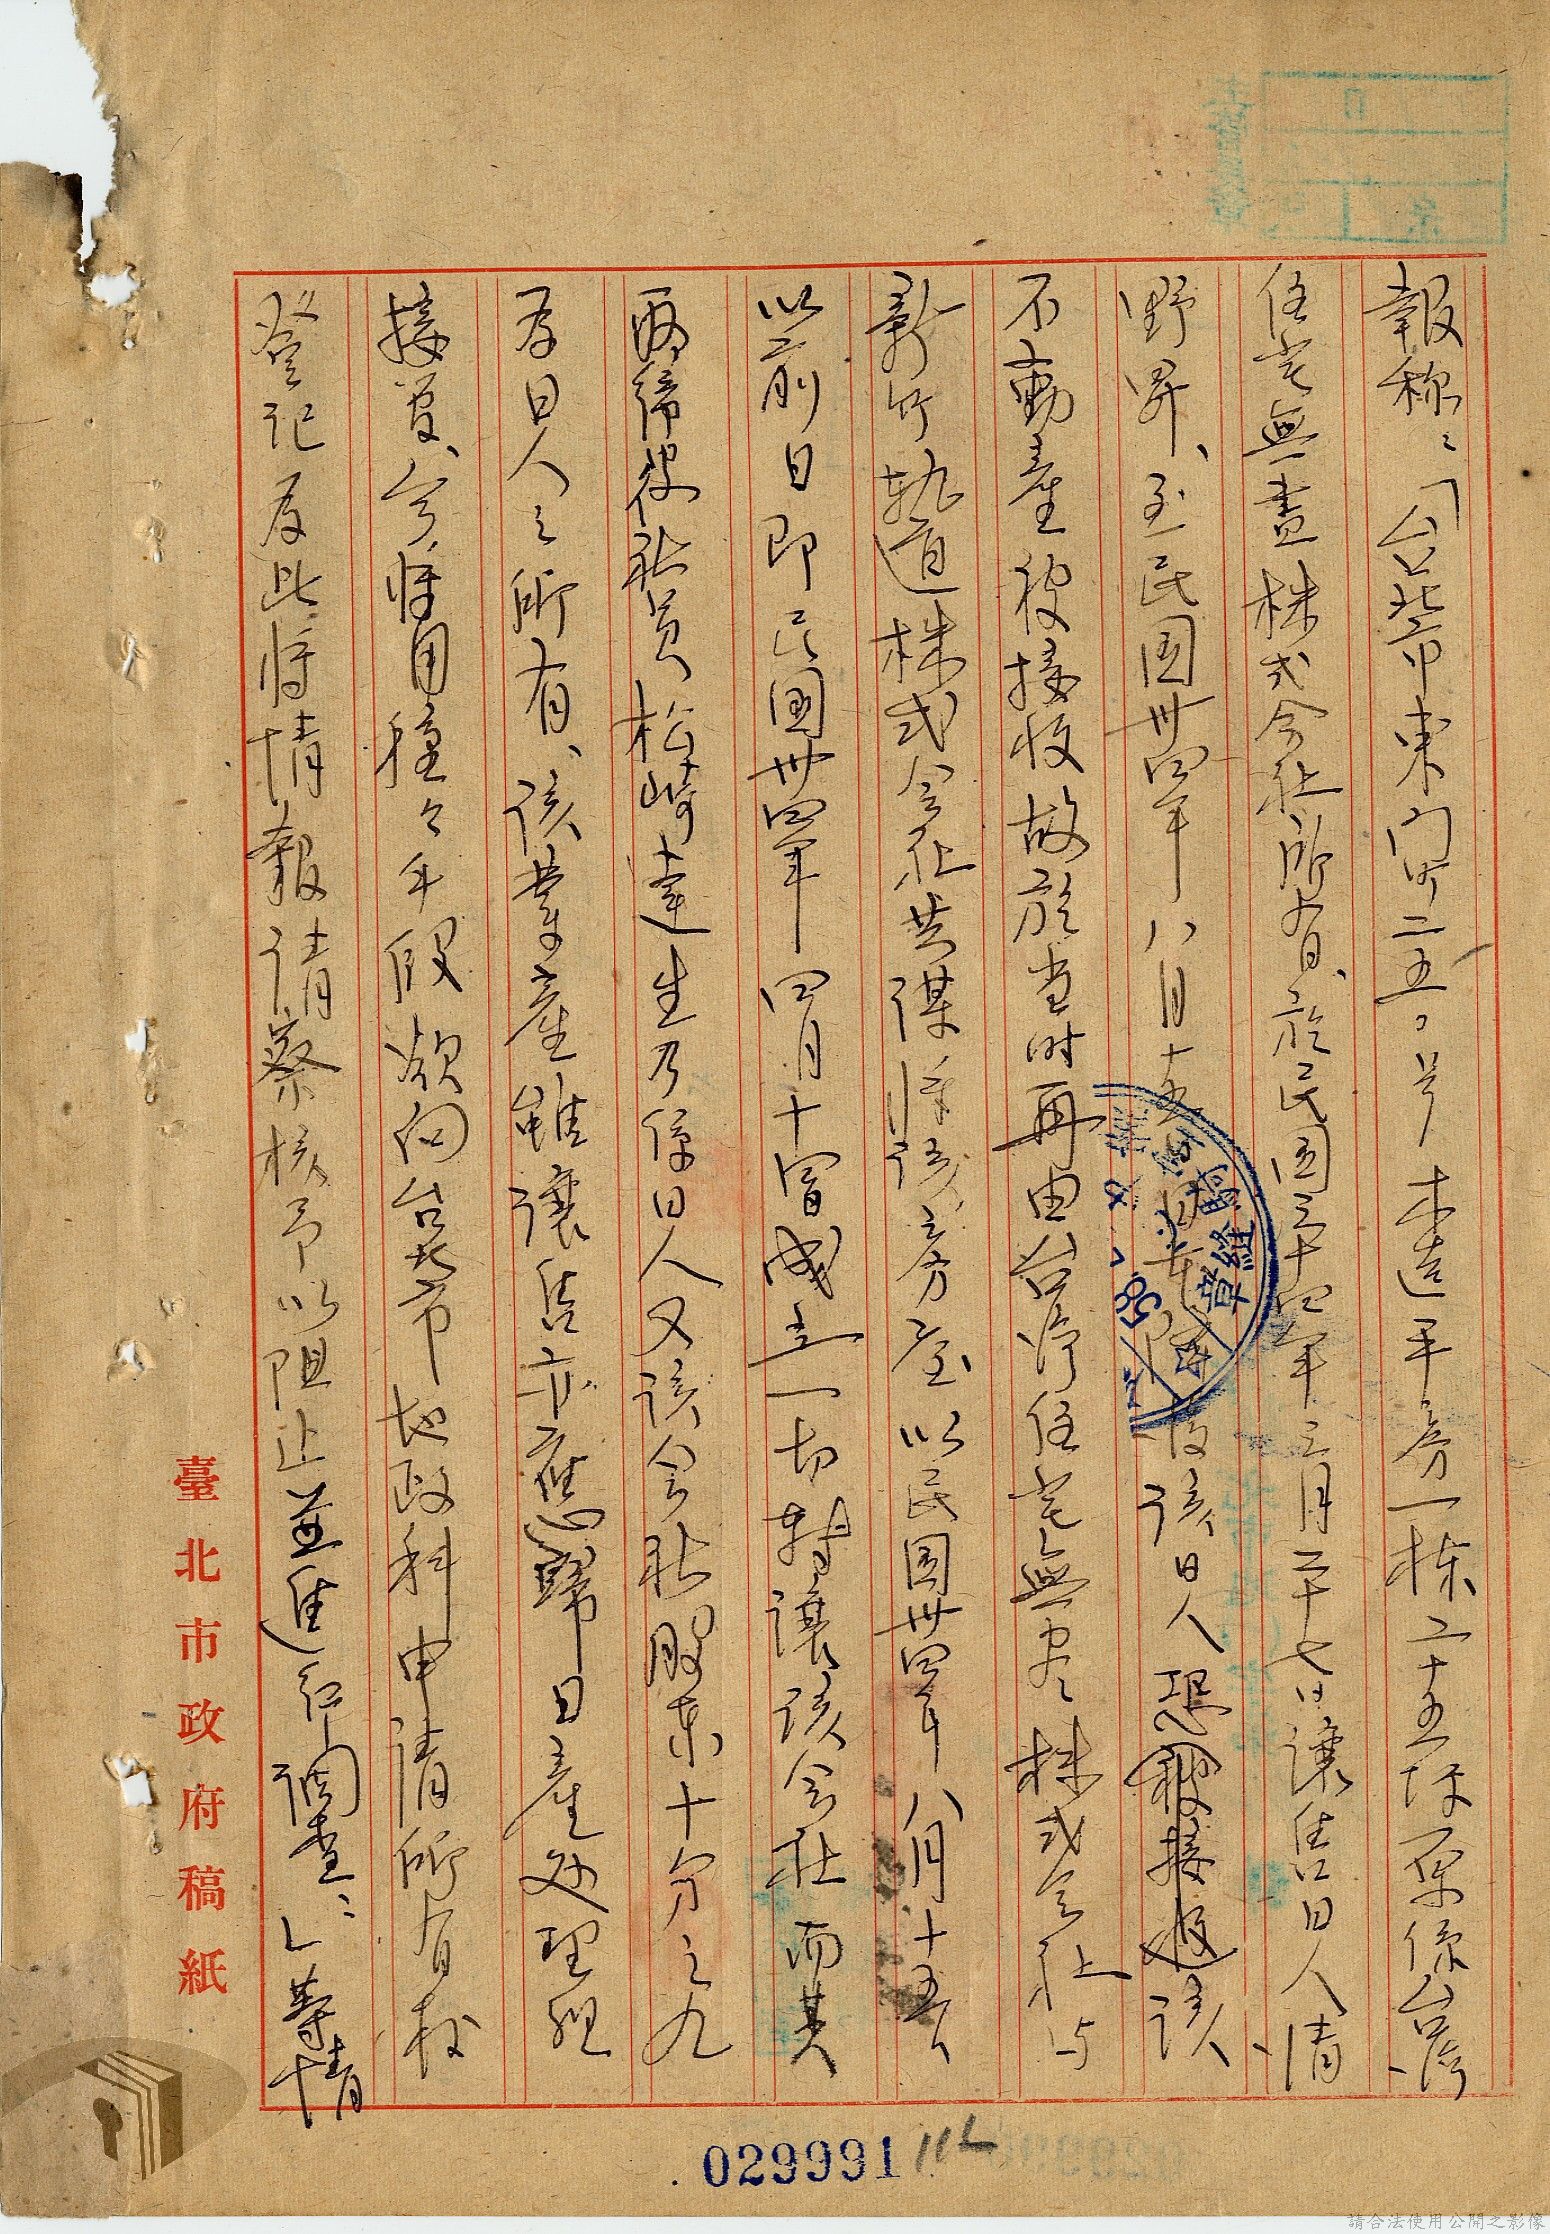 報称：「台北市東門町二五〇号木造平房一棟二十五坪原係台湾
住宅無盡株式会社所有、於民国三十四年三月二十七日讓售日人清
野昇、至民国卅四年八月十五日日本降伏後該日人恐被接收該
不動產被接收故於当時再由台湾住宅無尽株式会社与
新竹軌道株式会社共謀將該房屋以民国卅四年八月十五日
以前日即民国卅四年四月十冒成立一切轉讓該会社而其
取締役社員松崎達生乃係日人又該会社股東十分之九
為日人之所有、該業產雖讓售亦應歸日產处理組
接管、今將用種々手段欲向台北市地政科申請所有权
登記為此將情報請察核予以阻止並進行調查、」等情
臺北市政府稿紙
029991
請合法使用公開之影像